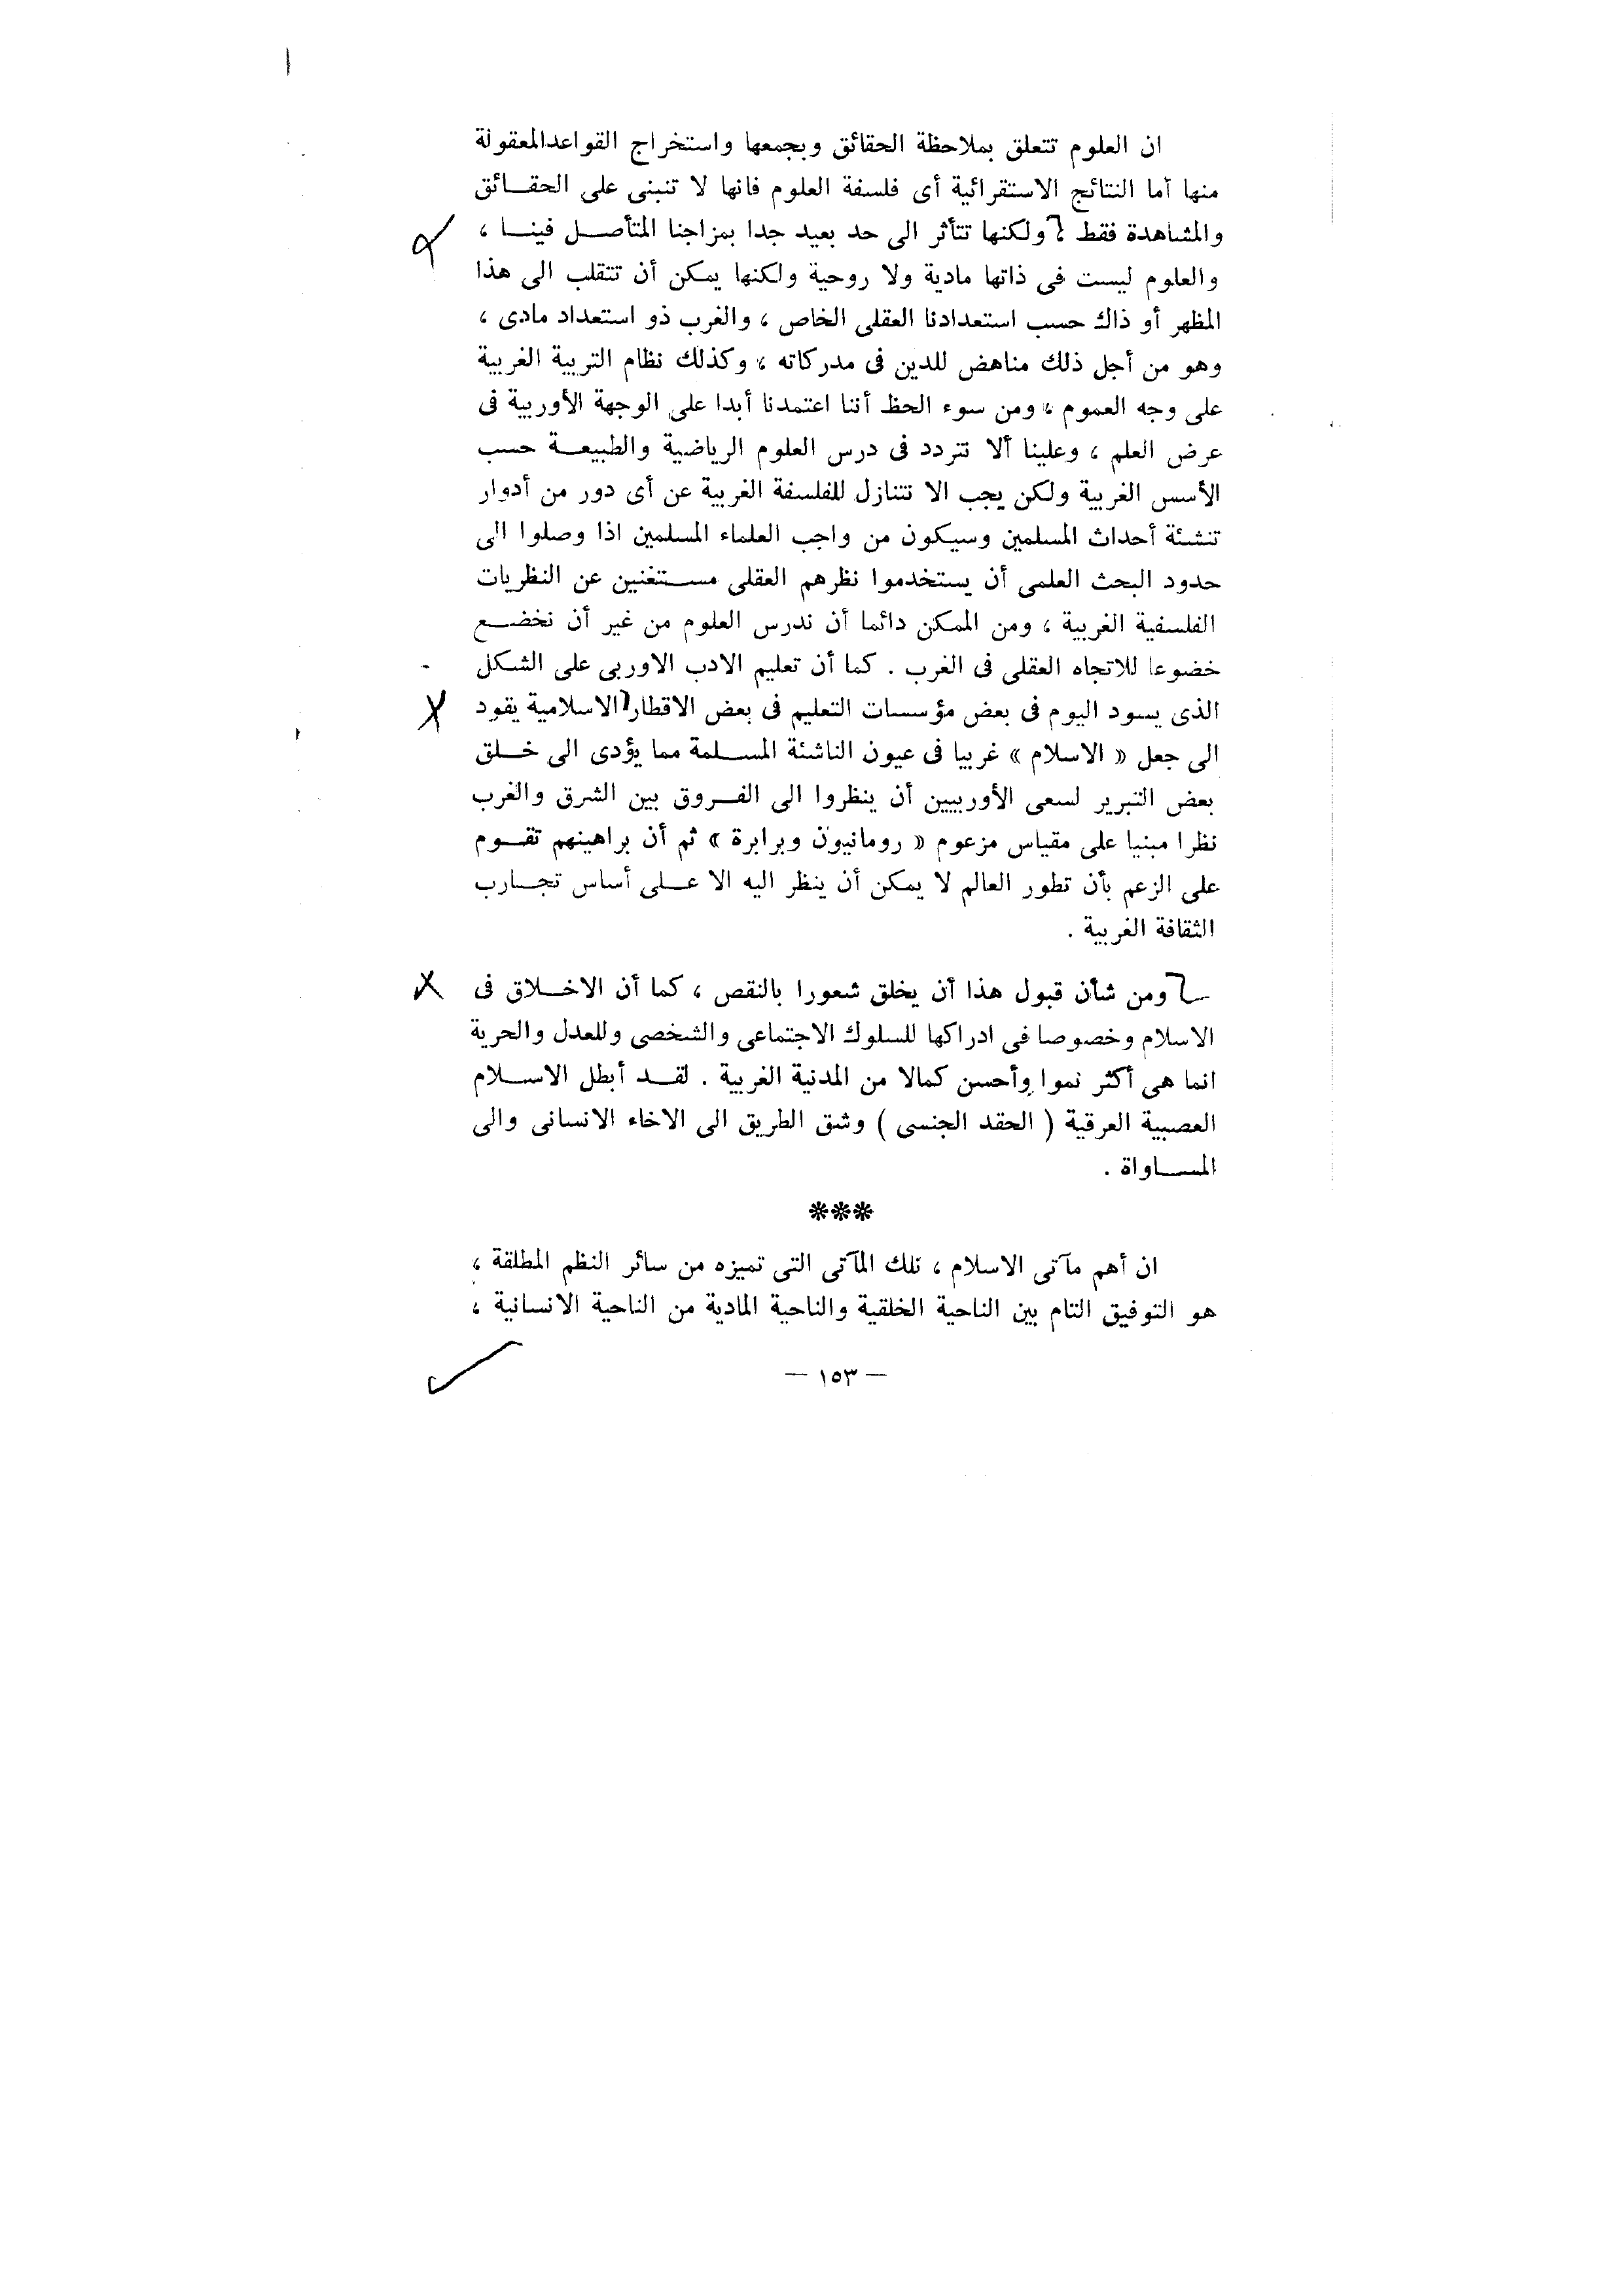 ان العلوم تتعلق بملاحظة الحقائق وبجمعها واستخراج القواعدالمعقولة
منها أما النتائج الاستقرائية أى فلسفة العلوم فانها لا تنبنى على الحقائق
والمشاهدة فقط ولكنها تتأثر الى حد بعيد جدا بمزاجنا المتأصل فينا ،
والعلوم ليست فى ذاتها مادية ولا روحية ولكنها يمكن أن تتقلب الى هذا
المظهر أو ذاك حسب استعدادنا العقلى الخاص ، والغرب ذو استعداد مادى ،
وهو من أجل ذلك مناهض للدين فى مدركاته ، وكذلك نظام التربية الغربية
على وجه العموم ، ومن سوء الحظ أننا اعتمدنا أبدا على الوجهة الأوربية فى
عرض العلم ، وعلينا ألا نتردد فى درس العلوم الرياضية والطبيعة حسب
الأسس الغربية ولكن يجب الا نتنازل للفلسفة الغربية عن أى دور من أدوار
تنشئة أحداث المسلمين وسيكون من واجب العلماء المسلمين اذا وصلوا الى
حدود البحث العلمى أن يستخدموا نظرهم العقلى مستغنين عن النظريات
الفلسفية الغربية ، ومن الممكن دائما أن ندرس العلوم من غير أن نخضع
خضوعا للاتجاه العقلى فى الغرب . كما أن تعليم الادب الاوربى على الشكل
الذى يسود اليوم فى بعض مؤسسات التعليم فى بعض الاقطار الاسلامية يقود
الى جعل « الاسلام » غريبا فى عيون الناشئة المسلمة مما يؤدى الى خلق
بعض التبرير لسعى الأوربيين أن ينظروا الى الفروق بين الشرق والغرب
نظرا مبنيا على مقياس مزعوم « رومانيون وبرابرة » ثم أن براهينهم تقوم
على الزعم بأن تطور العالم لا يمكن أن ينظر اليه الا على أساس تجارب
الثقافة الغربية .
ومن شأن قبول هذا أن يخلق شعورا بالنقص ، كما أن الاخلاق فى
الاسلام وخصوصا فى ادراكها للسلوك الاجتماعى والشخصى وللعدل والحرية
انما هى أكثر نموا وأحسن كمالا من المدنية الغربية . لقد أبطل الاسلام
العصبية العرقية ( الحقد الجنسى ) وشق الطريق الى الاخاء الانسانى والى
المساواة .
***
ان أهم مآتى الاسلام ، تلك المآتى التى تميزه من سائر النظم المطلقة ،
هو التوفيق التام بين الناحية الخلقية والناحية المادية من الناحية الانسانية ،
— ١٥٣ —